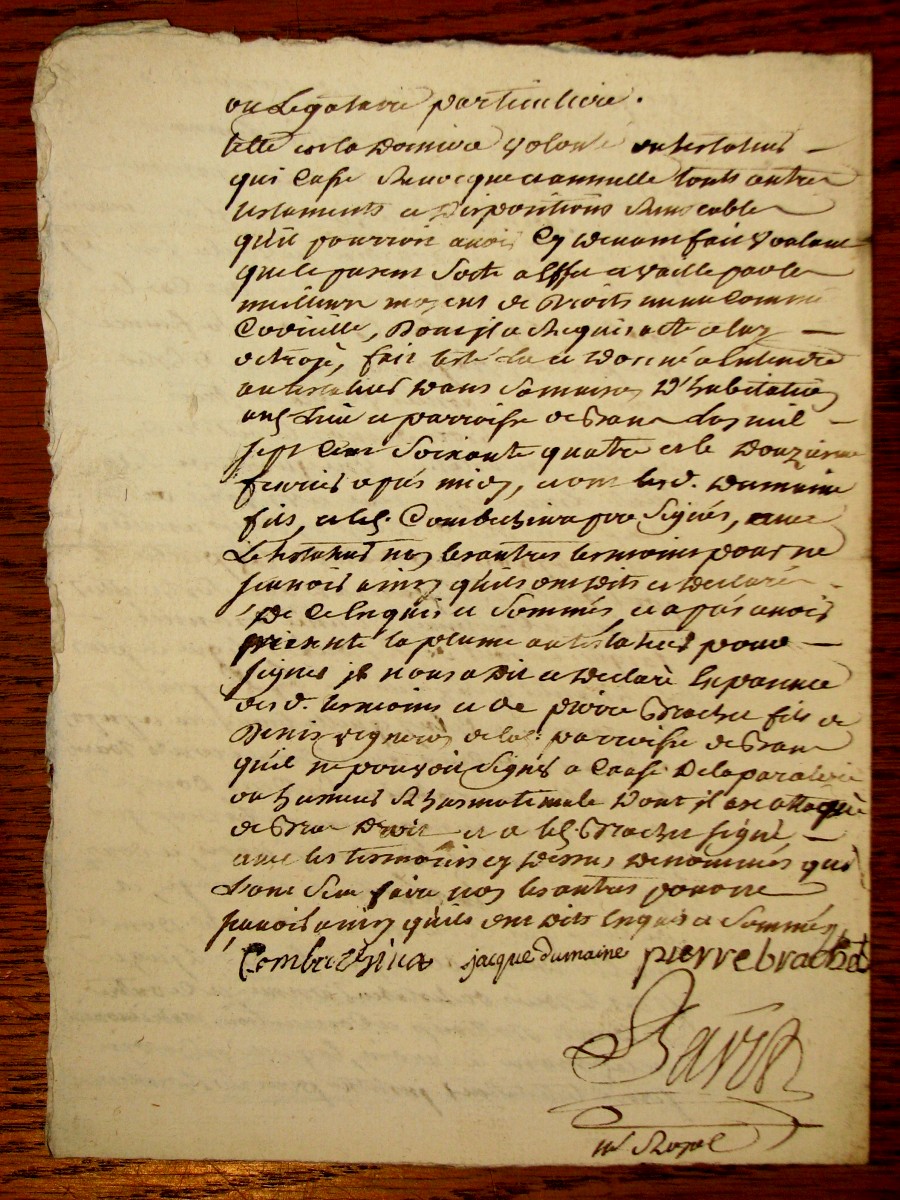 ou Legataire particuliere.
telle est la Derniere volonté du testateur
qui Casse Revocque et annulle touts autres
testaments et Dispositions Semblables
qu'il pourroit avoir Cy devant fait voulant
que le present Sorte a Effet et vaille par les
meilleurs moyens de Droits meme Comme
Codicille, Dont il a Requis acte a luy
octroyé, fait testé lu et Donné a Entendre
au testateur dans Sa maison D'habitation
aud. lieu et parroisse de L'an mil
sept Cent Soixante quatre et le Douzieme
fevrier après midy, et ont les d. Dumaine
fils, et led. Combechiva Signés, avec
Le testateur non les autres temoins pour ne
scavoir ainsy qu'ils ont Dits et Declarés
De Ce Enquis et Sommés, et après avoir
presenté la plume au testateur pour
signer il nous a Dit et Declaré En presence
des d. temoins et de pierre Brachet fils de
Denis vigneron de lad. parroisse de
qu'il ne pouvoit Signer a Cause De la paralisie
ou humeur Rhumatismale Dont il est attaqué
du Bras Droit et a led. Brachet signé
avec les temoins cy Dessus Denommés qui
L'ont Sceu faire non les autres pour ne
scavoir ainsy qu'ils ont Dits Enquis et Sommés,
Combechiva jacque dumaine pierre brachet
Bavon
nre Royal